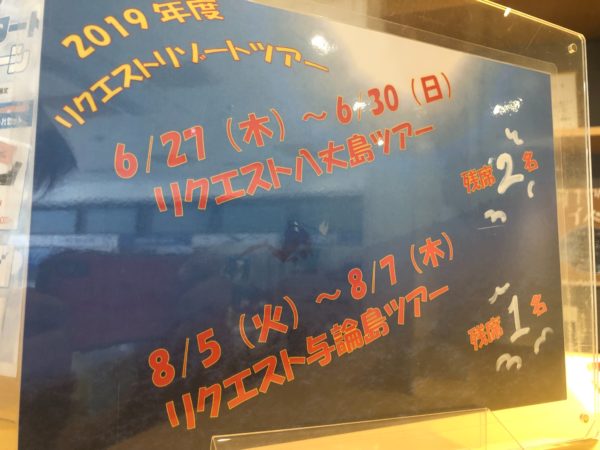 2019年度
リクエストリゾートツアー
6/27（木）～6/30（日）
リクエスト八丈島ツアー
残席2名
8/5（火）～8/7（木）
リクエスト与論島ツアー
残席1名